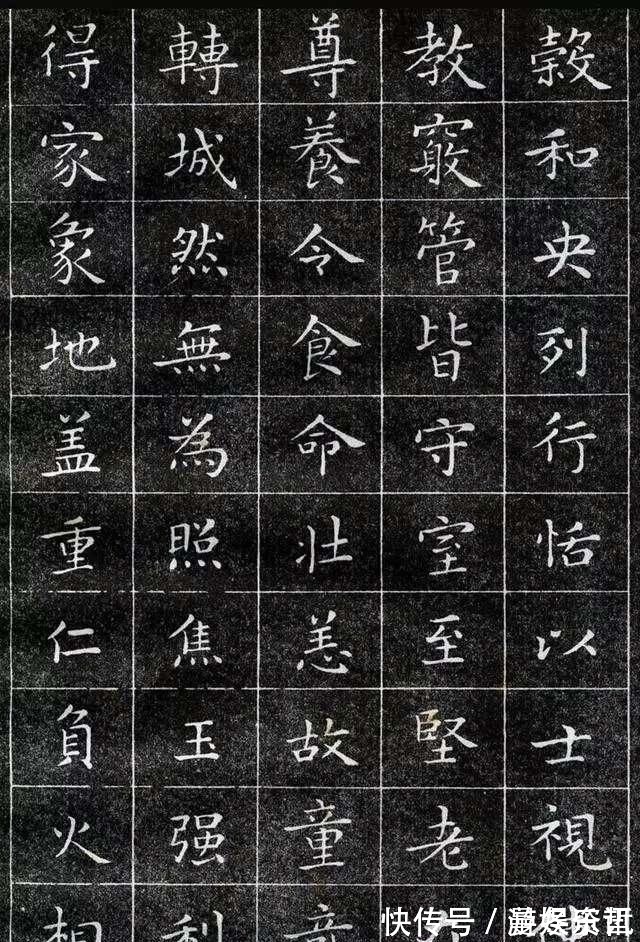 穀和央列行恬以士視
教竅管皆守室至堅老
尊養令食命壯恙故童
轉城然無為照焦玉强利
得家象地盖重仁負火相
快传号 /